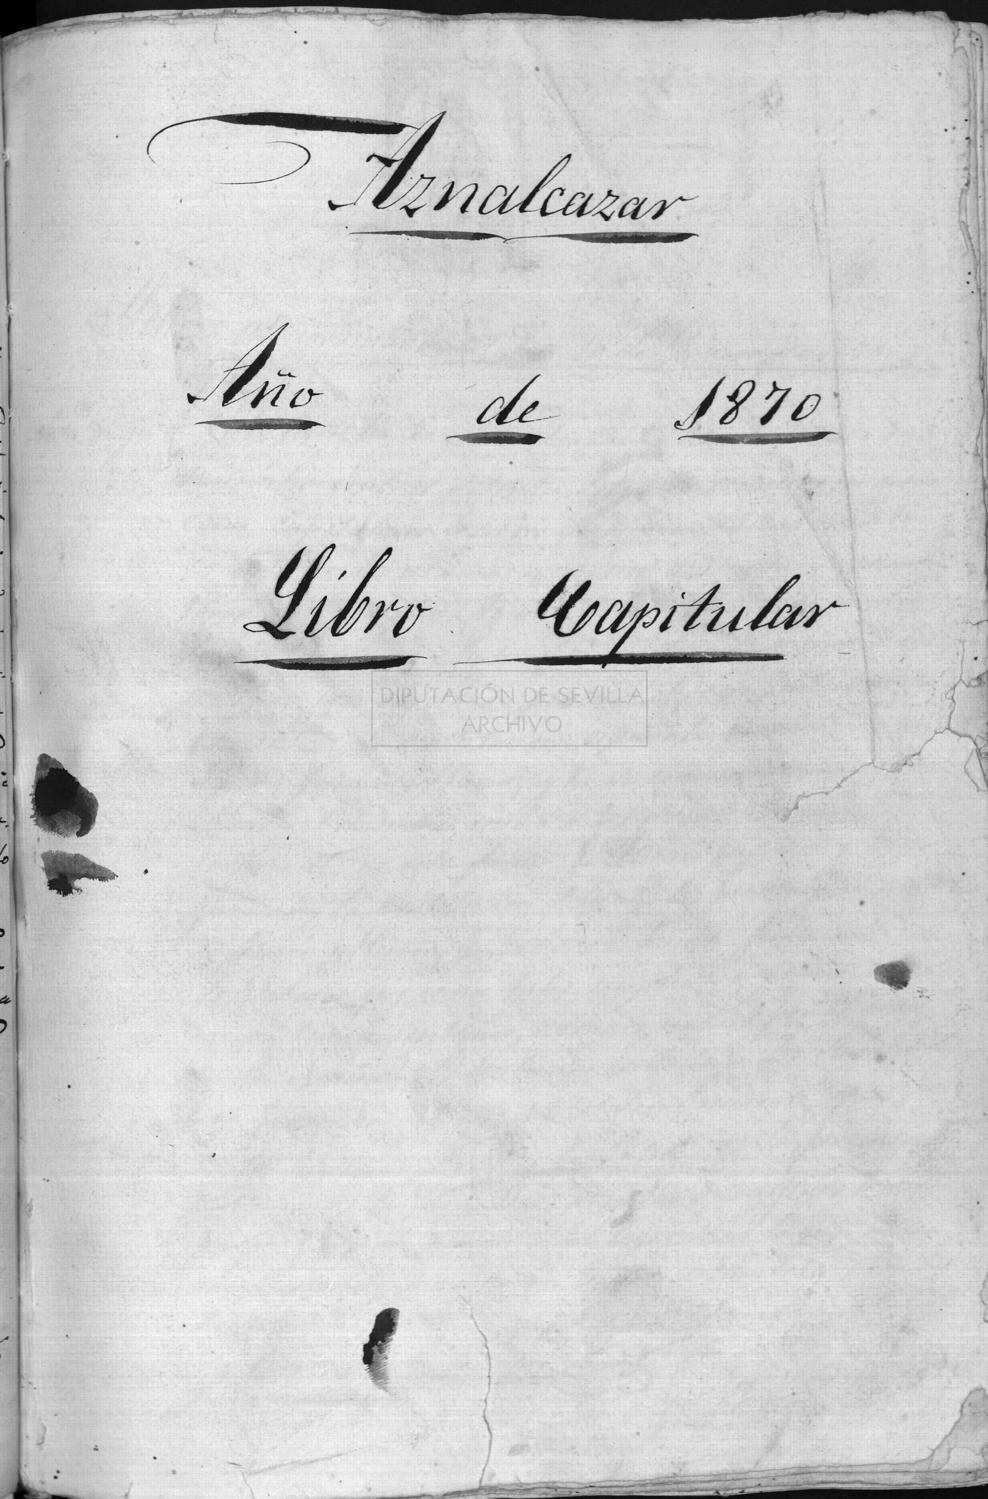 Aznalcazar
Año de 1870
Libro Capitular
DIPUTACIÓN DE SEVILLA
ARCHIVO